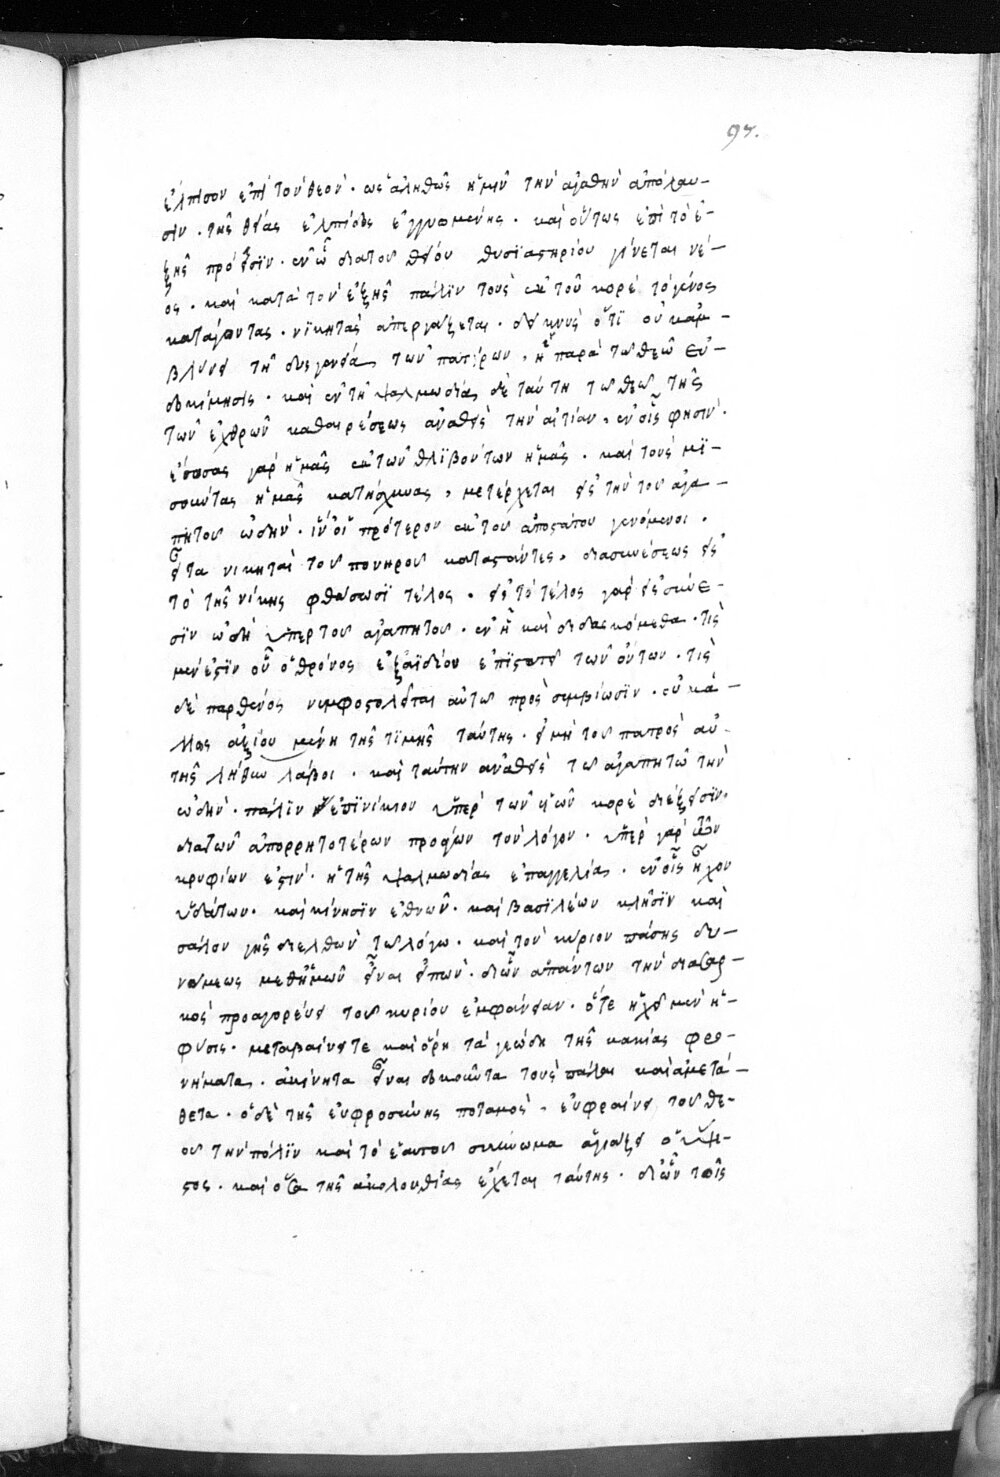 97.
ἔλπισον ἐπὶ τὸν θεόν · ὡς ἀληθῶς ἡμῖν τὴν ἀγαθὴν ἀπόλαυ-
σιν · τῆς θείας ἐλπίδος ἐγγυωμένης · καὶ οὕτως ἐπὶ τὸ ἑ-
ξῆς πρόεισϊν · ἐν ᾧ διατοῦ θείου θυσϊαστηρίου γίνεται νέ-
ος · καὶ κατὰ τὸν ἑξῆς πάλϊν τοὺς ἐκ τοῦ κορὲ τὸ γένος
κατάγοντας · νϊκητὰς ἀπεργάζεται · δεικνὺς ὅτϊ οὐκ ἀμ-
βλύνει τῇ δυσγενείᾳ τῶν πατέρων, ἡ παρὰ τῶ θεῷ εὐ-
δοκίμησις · καὶ ἐν τῇ ψαλμωδίᾳ δὲ ταύτη τῶ θεῶ τῆς
τῶν ἐχθρῶν καθαιρέσεως ἀναθεὶς τὴν αἰτίαν, ἐν οἷς φησιν ·
ἔσωσας γὰρ ἡμᾶς ἐκ τῶν θλϊβόντων ἡμᾶς · καὶ τοὺς μϊ-
σοῦντας ἡμᾶς κατήσχυνας, μετέρχεται εἰς τὴν τοῦ ἀγα-
πητοῦ ὠδήν · ἵν' οἱ πρότερον ἐκ τοῦ ἀποστάτου γενόμενοι ·
εἶτα νικηταὶ τοῦ πονηροῦ καταστάντες, διασυνέσεως εἰς
τὸ τῆς νίκης φθάσωσϊ τέλος · εἰς τὸ τέλος γὰρ εἰς σύνε-
σϊν ὠδὴ ὑπερ τοῦ ἀγαπητοῦ · ἐν ᾗ καὶ διδασκόμεθα · τίς
μέν ἐστϊν οὗ ὁ θρόνος ἐξαϊδίου ἐπϊστατεῖ τῶν ὄντων · τίς
δὲ παρθένος νυμφοστολεῖται αὐτῶ πρὸς συμβίωσϊν · οὐκ ἀ-
λλως ἀξιουμένη τῆς τϊμῆς ταύτης · εἰ μὴ τοῦ πατρὸς αὐ-
τῆς λήθην λάβοι · καὶ ταύτην ἀναθεὶς τῶ ἀγαπητῶ τὴν
ὠδήν · πάλϊν ἐπϊνίκιον ὑπὲρ τῶν υἱῶν κορὲ διέξεισϊν ·
διατῶν ἀπορρητοτέρων προάγων τὸν λόγον · ὑπὲρ γὰρ τῶν
κρυφίων ἐστίν · ἡ τῆς ψαλμωδίας ἐπαγγελία · ἐν οἷς ἦχον
ὑδάτων · καὶ κίνησϊν ἐθνῶν · καὶ βασϊλέων κλῆσϊν καὶ
σάλον γῆς διελθὼν τῶ λόγω · καὶ τὸν κύριον πάσης δυ-
νάμεως μεθ' ἡμῶν εἶναι εἰπών · δι ὧν ἁπάντων τὴν διασαρ-
κὸς προαγορεύει τοῦ κυρίου ἐμφάνειαν · ὅτε ἠχεῖ μὲν ἡ
φύσις · μεταβαίνει τε καὶ ὄρη τὰ γεώδη τῆς κακίας φρο-
νήματα · ἀκίνητα εἶναι δοκοῦντα τοὺς πάλαι καὶ ἀμετά-
θετα · ὁ δὲ τῆς εὐφροσύνης ποταμὸς, εὐφραίνει τοῦ θε-
οῦ τὴν πόλϊν καὶ τὸ ἑαυτοῦ σκήνωμα ἁγιάζει ὁ ὕψι-
στος · καὶ ὅσα τῆς ἀκολουθίας ἔχεται ταύτης · δι ὧν τοῖς